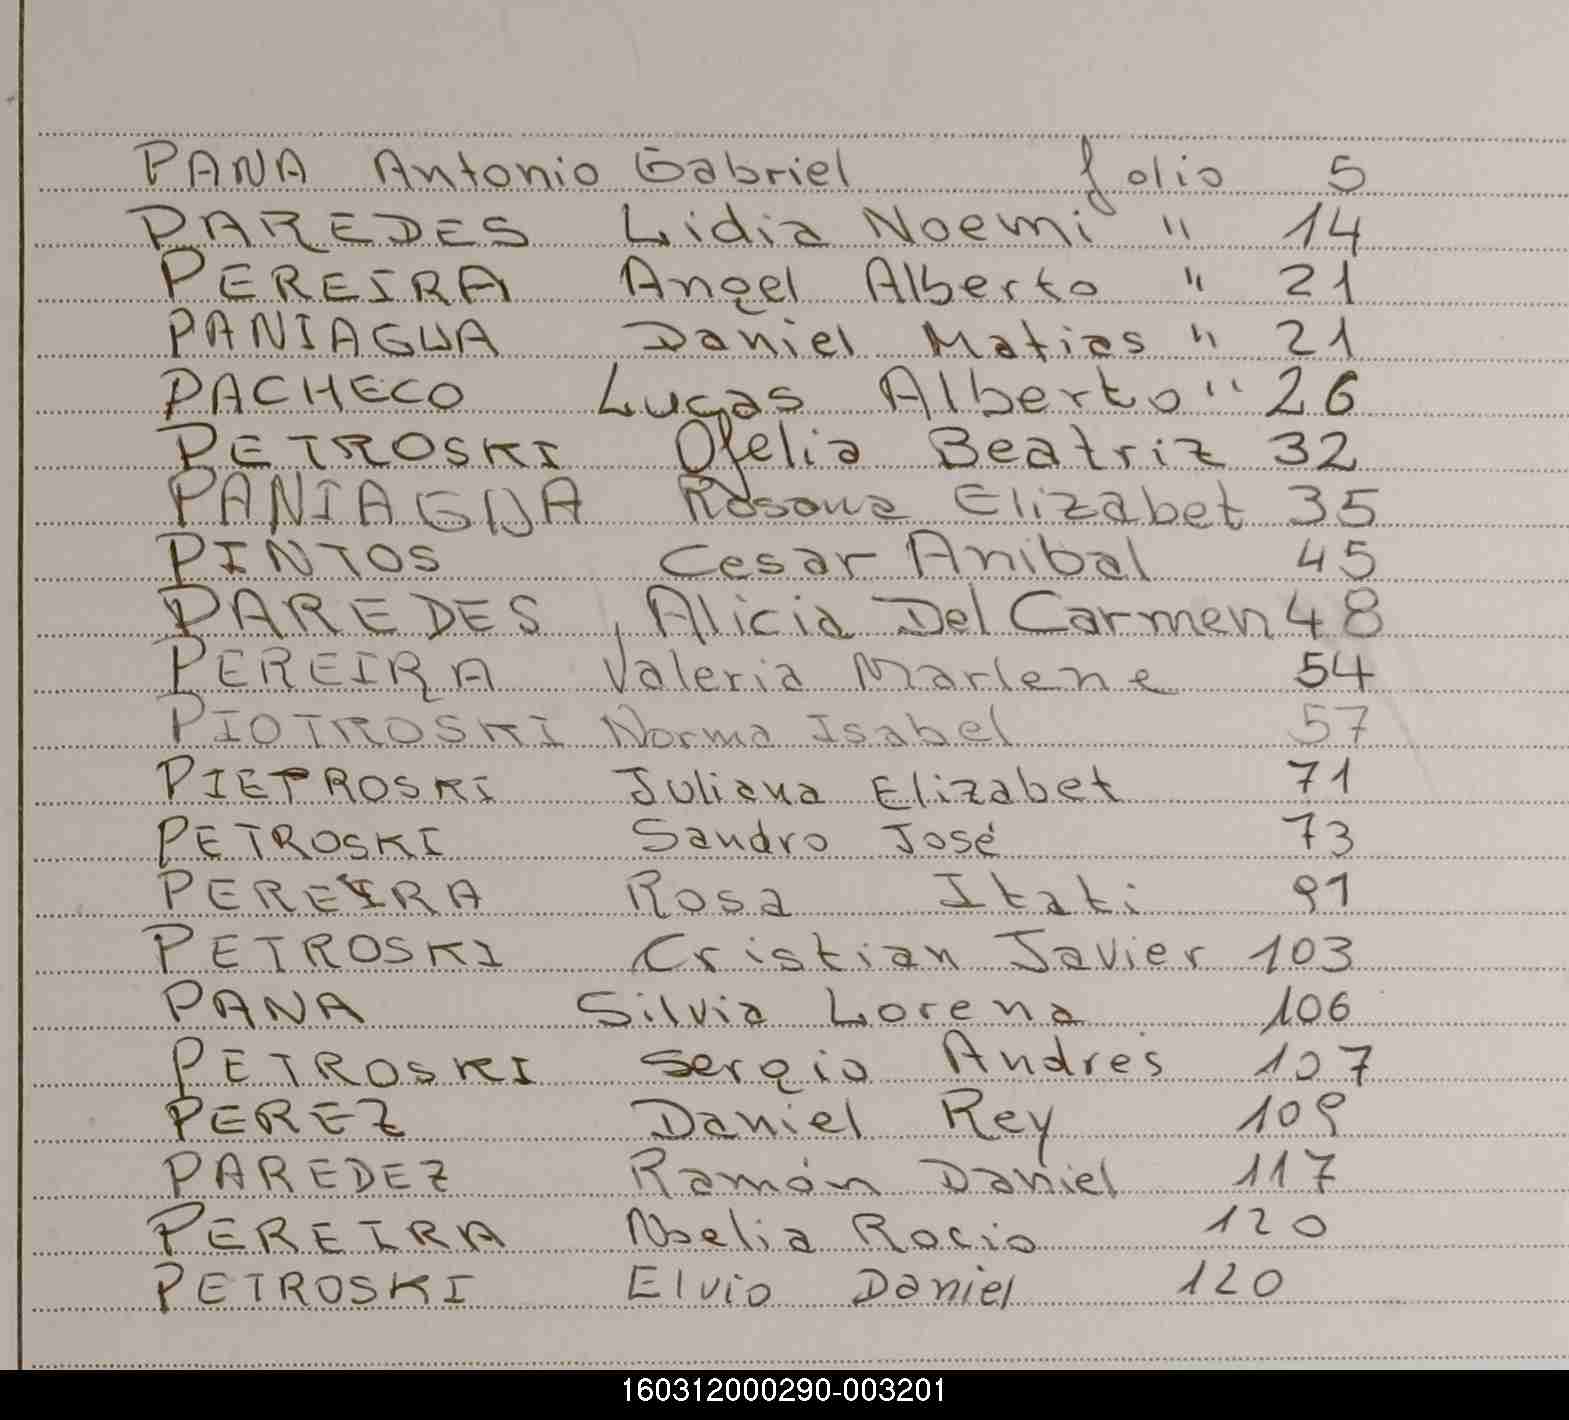 PANA Antonio Gabriel folio 5
PAREDES Lidia Noemi " 14
PEREIRA Angel Alberto " 21
PANIAGUA Daniel Matias " 21
PACHECO Lucas Alberto " 26
PETROSKI Ofelia Beatriz 32
PANIAGUA Rosana Elizabet 35
PINTOS Cesar Anibal 45
PAREDES , Alicia Del Carmen 48
PEREIRA Valeria Marlene 54
PIOTROSKI Norma Isabel 57
PIETROSKI Juliana Elizabet 71
PETROSKI Sandro José 73
PEREIRA Rosa Itati 91
PETROSKI Cristian Javier 103
PANA Silvia Lorena 106
PETROSKI Sergio Andrés 107
PEREZ Daniel Rey 109
PAREDEZ Ramón Daniel 117
PEREIRA Noelia Rocio 120
PETROSKI Elvio Daniel 120
160312000290-003201